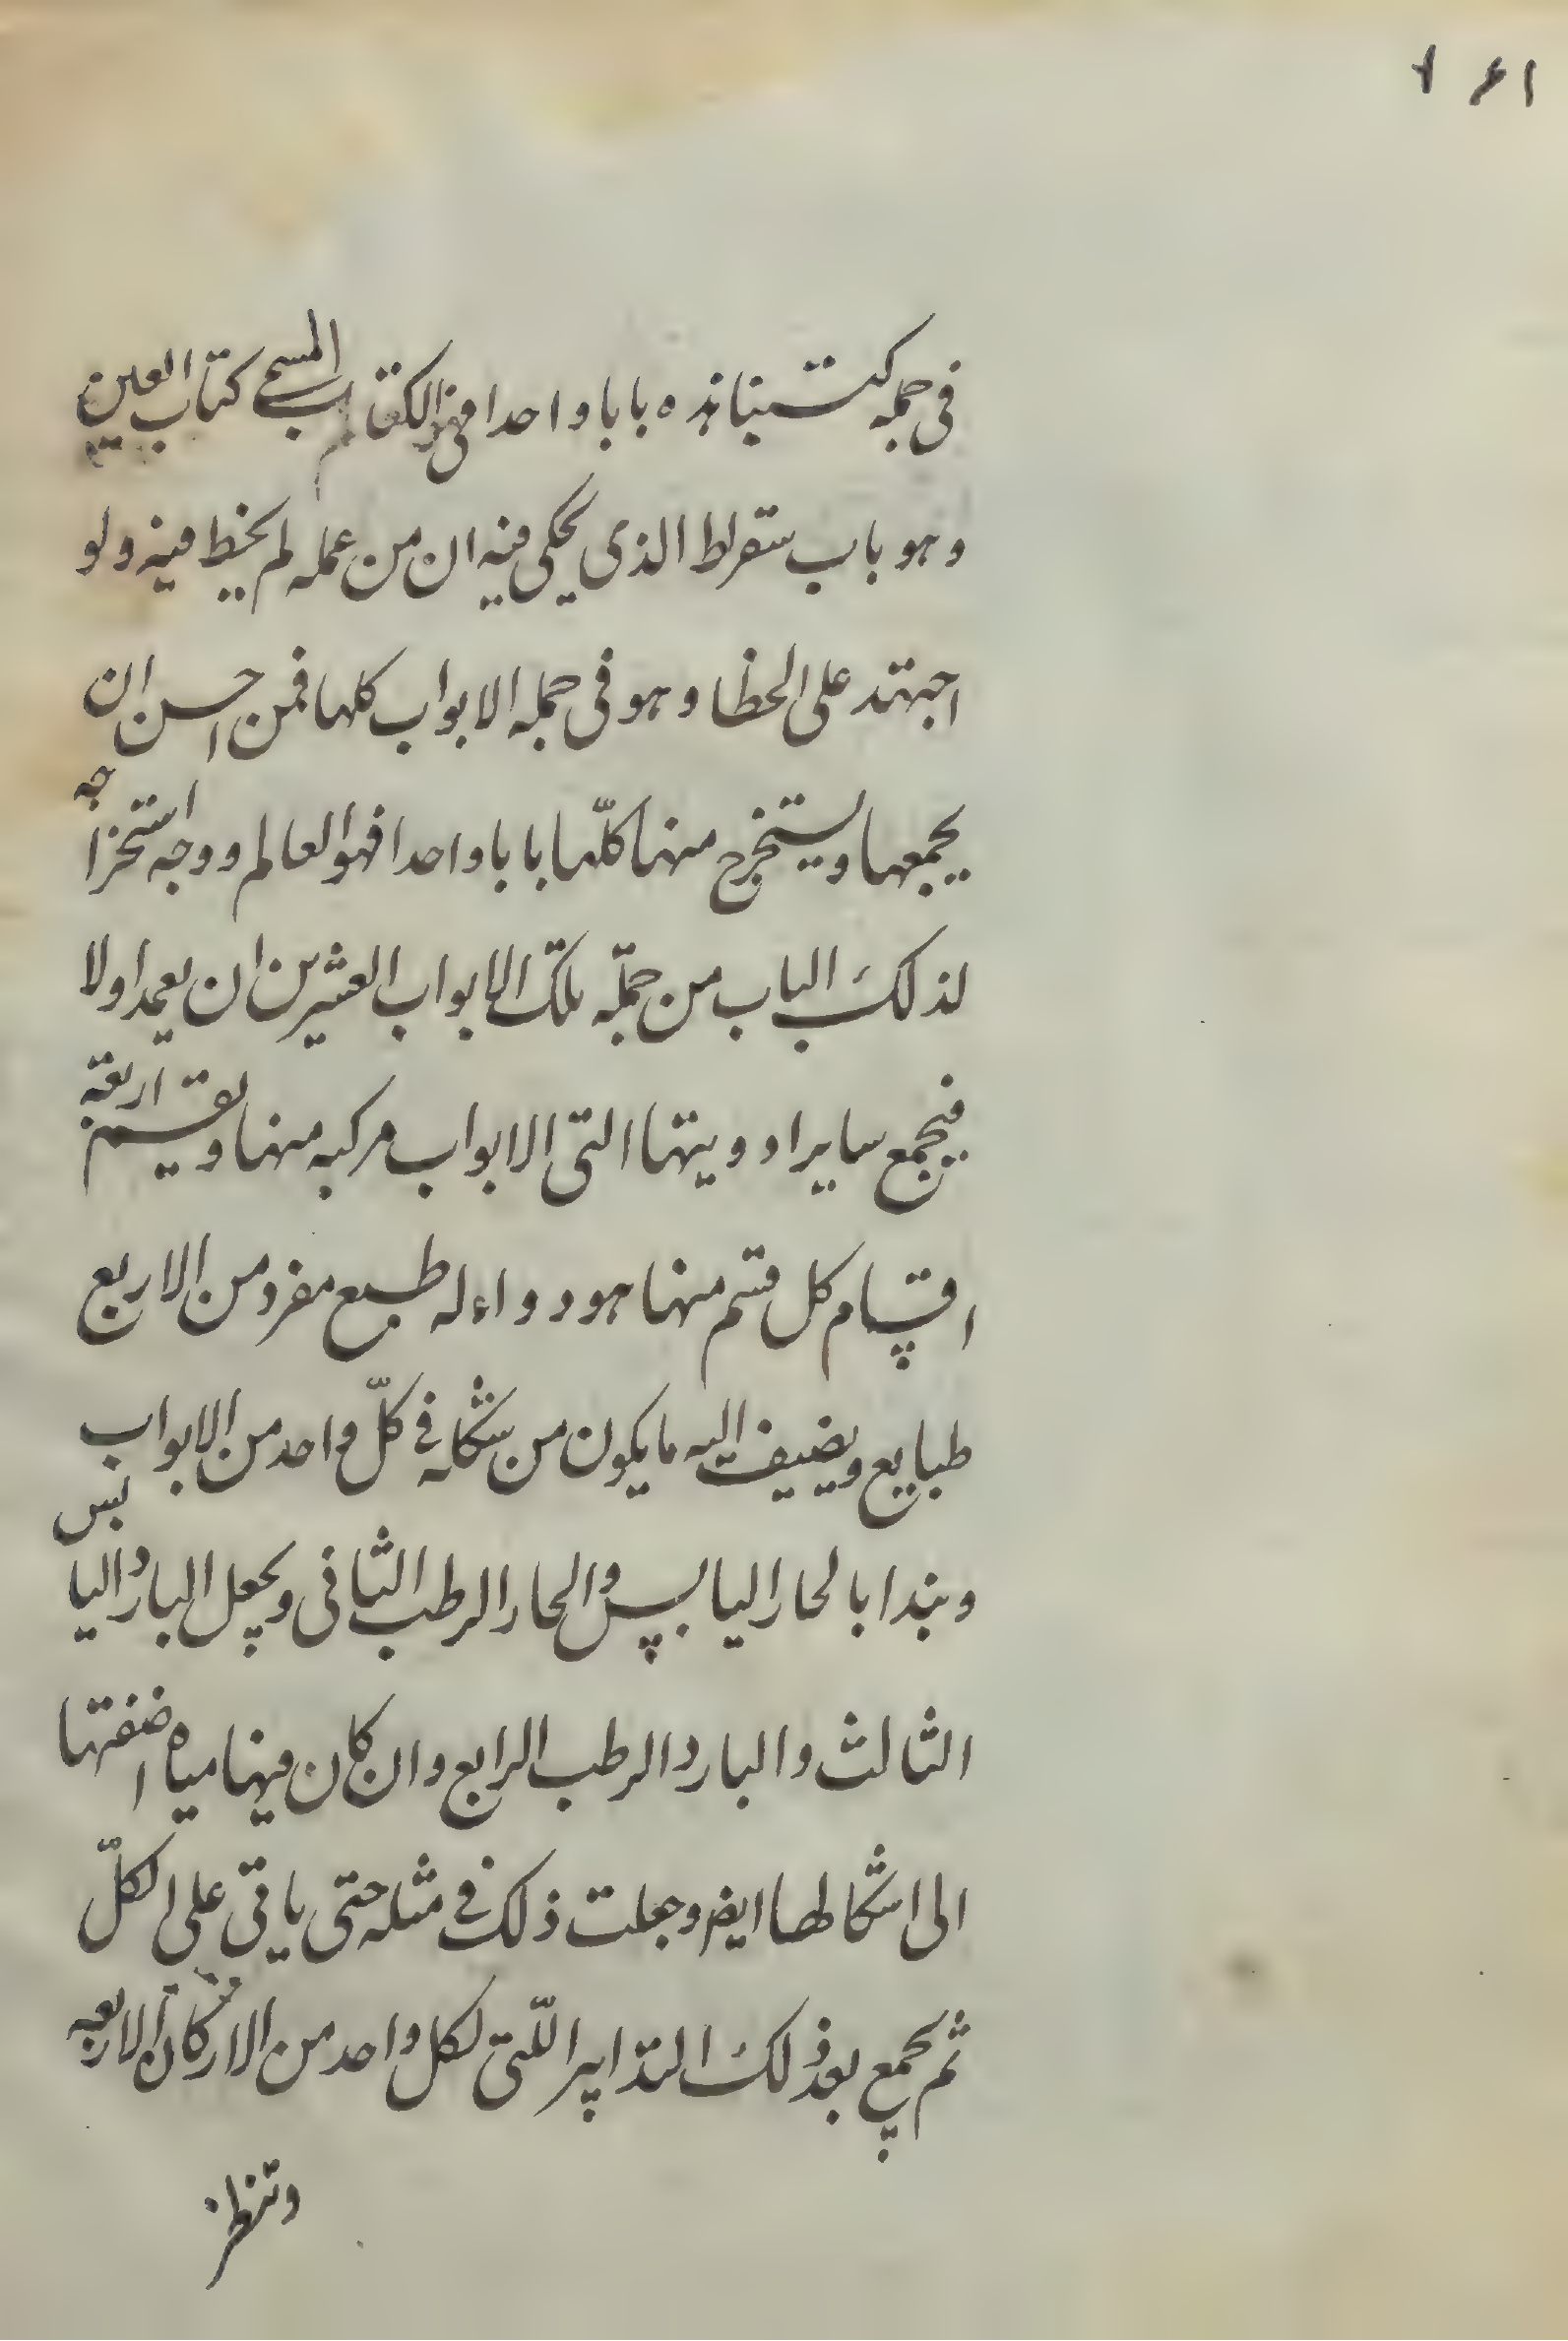 في جمله كتبنا نذه بابا واحدا في هذا الكتاب المسمى كتاب العين
وهو باب سقراط الذي يحكى فيه ان من عمله لم يخط فيه ولو
اجتهد على الخطا وهو في جمله الابواب كلها فمن احسن ان
يجمعها ويستخرج منها كلّها بابا واحدا فهو العالم ووجه استخراجه
لذلك الباب من جملة تلك الابواب العشرين ان يعمد اولا
فيجمع ساير ادويتها التي الابواب مركبه منها ويقسم اربعة
اقسام كل قسم منها هو دواء له طبع مفرد من الاربع
طبايع ويضيف اليه ما يكون من شكله في كلّ واحد من الابواب
ويبدا بالحار اليابس والحار الرطب الثاني ويجعل البارد اليابس
الثالث والبارد الرطب الرابع وان كان فيها مياه اضفتها
الى اشكالها ايضا وجعلت ذلك في مثله حتى ياتي على الكلّ
ثم يجمع بعد ذلك التدابير اللّتي لكل واحد من الاركان الاربعه
وتنظر